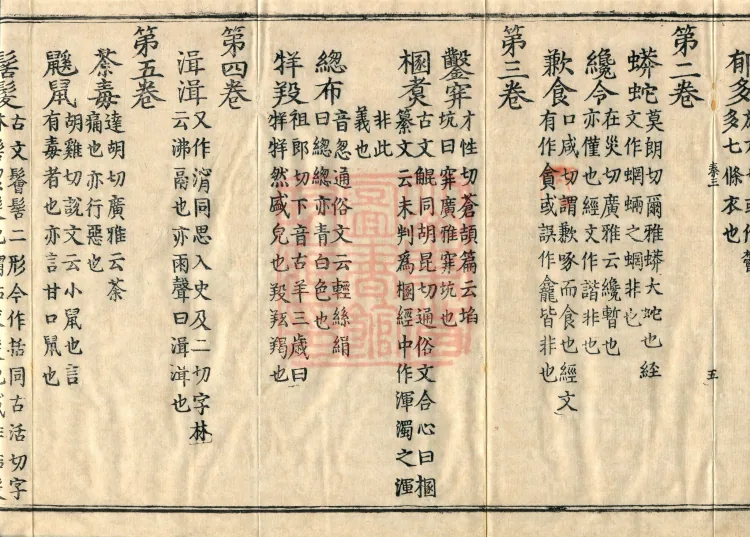 郁多
多七條衣也
卷三
五
第二卷
蟒蛇莫朗切爾雅蟒大蛇也経
文作蝄蜽之蝄非也
纔令在災切廣雅云纔暫也
亦僅也經文作讒非也
歉食口咸切謂歉啄而食也經文
有作貪或誤作龕皆非也
第三卷
鑿穽才性切蒼頡篇云掐
坑曰穽廣雅穽坑也
梱煑古文鯤同胡昆切通俗文合心曰梱
纂文云未判爲梱經中作渾濁之渾
非此
義也
總布音忽通俗文云輕絲絹
曰總總亦青白色也
牂羖祖郎切下音古羊三歲曰
牂牂然盛皃也羖羥羯也
第四卷
湒湒又作㴙同思入史及二切字林
云沸鬲也亦雨聲曰湒湒也
第五卷
荼毒達胡切廣雅云荼
痛也亦行惡也
鼷鼠胡雞切說文云小鼠也言
有毒者也亦言甘口鼠也
髻髮古文鬠髻二形今作括同古活切字